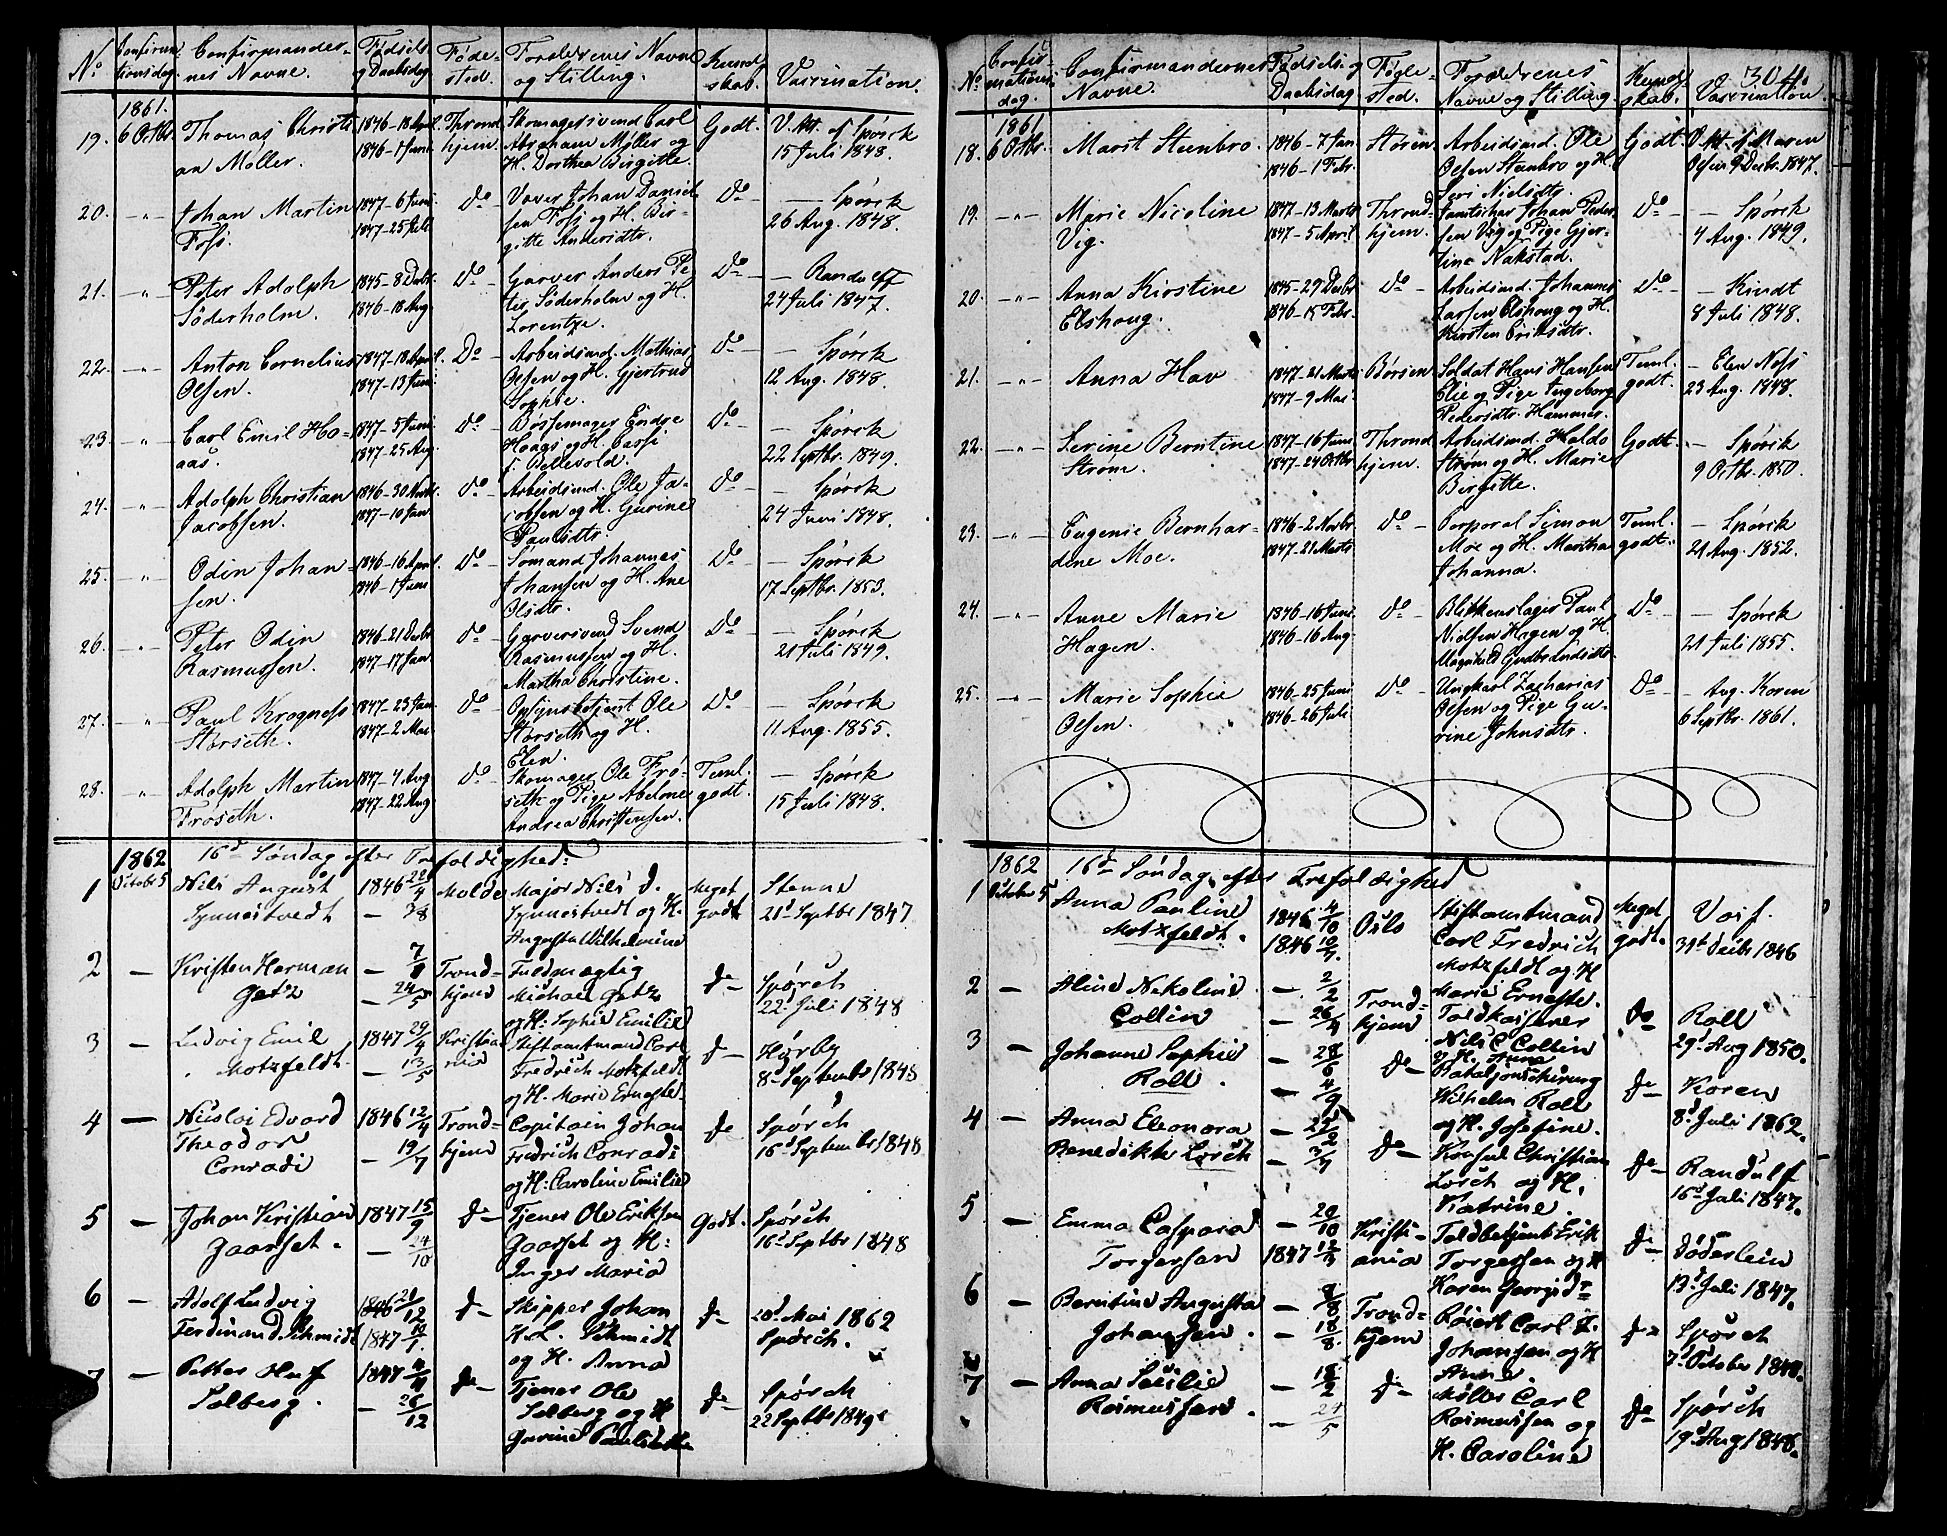 No Confirmationsdag. Confirmandernes Navne. Fødsels og Daabsdag Fødested. Forældrenes Navne og Stilling. Kundskab. Vaccination.
1861.
19. 6 Octbr. Thomas Christian Møller. 1846-18 April 1846-1 Juni Throndhjem. Skomagersvend Carl Abraham Møller og H. Dorthea Birgitte. Godt. V. Att. af Spørck 15 Juli 1848.
20. -"- Johan Martin Foss. 1847-6 Juni 1847-25 Juli Do Væver Johan Danielsen Foss og H. Birgitte Andersdtr. Do — Spørck 26 Aug. 1848.
21. -"- Peter Adolph Söderholm. 1845-8 Decbr. 1846-18 Aug. Do Garver Anders Peter Söderholm og H. Lorentze. Do — Randulff 24 Juli 1847.
22. -"- Anton Cornelius Olsen. 1847-18 April. 1847-13 Juni Do Arbeidsmd. Mathias Olsen og H. Gjertrud Sophie. Do — Spørck 12 Aug. 1848.
23. -"- Carl Emil Hoaas. 1847-5 Juni 1847-25 Aug. Do Bøssemager Endre Hoaas og H. Do — Spørck 22 Septbr. 1849.
24. -"- Adolph Christian Jacobsen. 1846-30 Novbr. 1847-10 Jan. Do Arbeidsmd. Ole Jacobsen og H. Gurine Paulsdtr. Do — Spørck 24 Juni 1848.
25. -"- Odin Johansen. 1846-16 April 1846-1 Juni Do Sømand Johannes Johansen og H. Ane Olsdtr. Do — Spørck 17 Septbr. 1853.
26. -"- Peter Odin Rasmussen. 1846-21 Decbr. 1847-17 Jan Do Garversvend Svend Rasmussen og H. Martha Christine. Do — Spørck 21 Juli 1849.
27. -"- Paul Krogness Størseth. 1847-23 Jan 1847-2 Mai Do Opsynsbetjent Ole Størseth og H. Elen. Do — Spørck 11 Aug. 1855.
28. -"- Adolph Martin Frøseth. 1847-4 Aug. 1847-22 Aug. Do Skomager Ole Frøseth og Pige Andrea Christensen. Teml. godt. — Spørck 15 Juli 1848.
1862 16d Søndag efter Trefoldighed:
1 October 5 Nils August Synnestvedt 1846 22/4 — 3/8 Molde Major Nils S. Synnestvedt og H. Augusta Wilhelmine Meget godt Stenne 21d Septbr 1847
2 — Kristen Herman Getz — 24/5 Trondhjem Fuldmægtig Michael Getz og H: Sophie Emilie do Spørch 22d Juli 1848
3 — Ludvig Emil Motzfeldt. 1847 29/4 — 13/5 Kristiania Stiftamtmand Carl Fredrich Motzfeldt og H. Marie Ernefte. do Hørby 8d September 1848
4 — Nicolai Edvard Theodor Conradi 1846 12/4 — 19/7 Trondhjem Capitain Johan Fredrich Conradi og H: Caroline Emilie do Spørch 16d September 1848
5 — Johan Kristian Gaarset. 1847 15/9 — 24/10 do Tjener Ole Eriksen Gaarset og H: Inger Marie Godt. Spørch 16d Septbr 1848
6 — Adolf Ludvig Ferdinand Schmidt 1846 21/12 1847 10/1 do Skipper Johan H. L. Schmidt og H. Anna do 20d Mai 1862 Spørch.
7 — Petter Oluf Solberg. 1847 — 26/12 do Tjener Ole Solberg og H Gurine Paulsdatter do Spørch 22 Septbr 1849
304.
No. Confirmationsdag. Confirmandernes Navne. Fødsels og Daabsdag. Fødested. Forældrenes Navne og Stilling. Kundskab. Vaccination.
1861
18. 6 Octbr. Marit Stenbro. 1846-7 Jan 1846-1 Febr. Støren Arbeidsmd. Ole Olsen Stenbro og H. Seri Nielsdtr. Godt. V. Att. af Maren Olsen 9 Decbr. 1847.
19. -"- Marie Nicoline Vig. 1847-13 Marts 1847-5 April Throndhjem. Jamtschar Johan Pedersen Vig og Pige Gjertine Nakstad. Do — Spørck 4 Aug. 1849.
20. -"- Anna Kirstine Elshoug. 1845-29 Decbr 1846-15 Febr. Do Arbeidsmd. Johannes Larsen Elshoug og H. Kirsten Eriksdtr. Do — Kindt 8 Juli 1848.
21. -"- Anna Hav 1847-21 Marts 1847-9 Mai. Børsen Soldat Hans Hansen og Pige Ingeborg Pedersdtr. Hammer. Teml. godt. — Elen Noss 23 Aug. 1848.
22. -"- Serine Berntine Strøm. 1847-16 Juni 1847-24 Octbr. Throndhjem. Arbeidsmd. Haldo Strøm og H. Marie Birgitte. Godt. — Spørck 9 Octbr. 1850.
23. -"- Eugenie Bernhardine Moe. 1846-2 Novbr. 1847-21 Marts Do Corporal Simon Moe og H. Martha Johanna. Teml. godt. — Spørck 21 Aug. 1852.
24. -"- Anne Marie Hagen. 1846-16 Juni 1846-16 Aug. Do Blikkenslager Paul Nielsen Hagen og H. Magnhild Gudbrandsdtr. Do — Spørck 21 Juli 1855.
25. -"- Marie Sophie Olsen. 1846-25 Juni 1846-26 Juli. Do Ungkarl Zacharias Olsen og Pige Gurine Johnsdtr. Do — Aug. Koren 6 Septbr. 1861.
1862 16d Søndag efter Trefoldighed
1 October 5 Anna Pauline Motzfeldt. 1846 4/10 1846 Oslo Stiftamtmand Carl Fredrich Motzfeldt og H Marie Ernefte. Meget godt. Voss. 31t Decbr 1846
2 — Aline Nikoline Collin — 2/2 — 26/4 Trondhjem Toldkasserer Nils C Collin og H. Anna Do Roll 29d Aug 1850.
3 — Johanne Sophie Roll. — 28/6 — 4/9 do Bataljonschirurg Wilhelm Roll og H. Josefine. do Koren 8d Juli 1862.
4 — Anna Eleonora Benedikte Lorck — 3/7 do Konsul Christian Lorck og H. Katrine. do Randulf 16d Juli 1847.
5 — Emma Caspara Torgersen — 20/10 1847 Kristiania Toldbetjent Erik Torgersen og H Karen Georgsd: do Döderlein 13d Juli 1847.
6 — Berntine Augusta Johansen. — 18/8. Trondhjem Carl F. Johansen og H Anne. do Spørch 7d October 1848.
7 — Anna Secilie Rasmussen. — 24/5 do Møller Carl Rasmussen og H. Caroline do Spørch 19d Aug 1848.